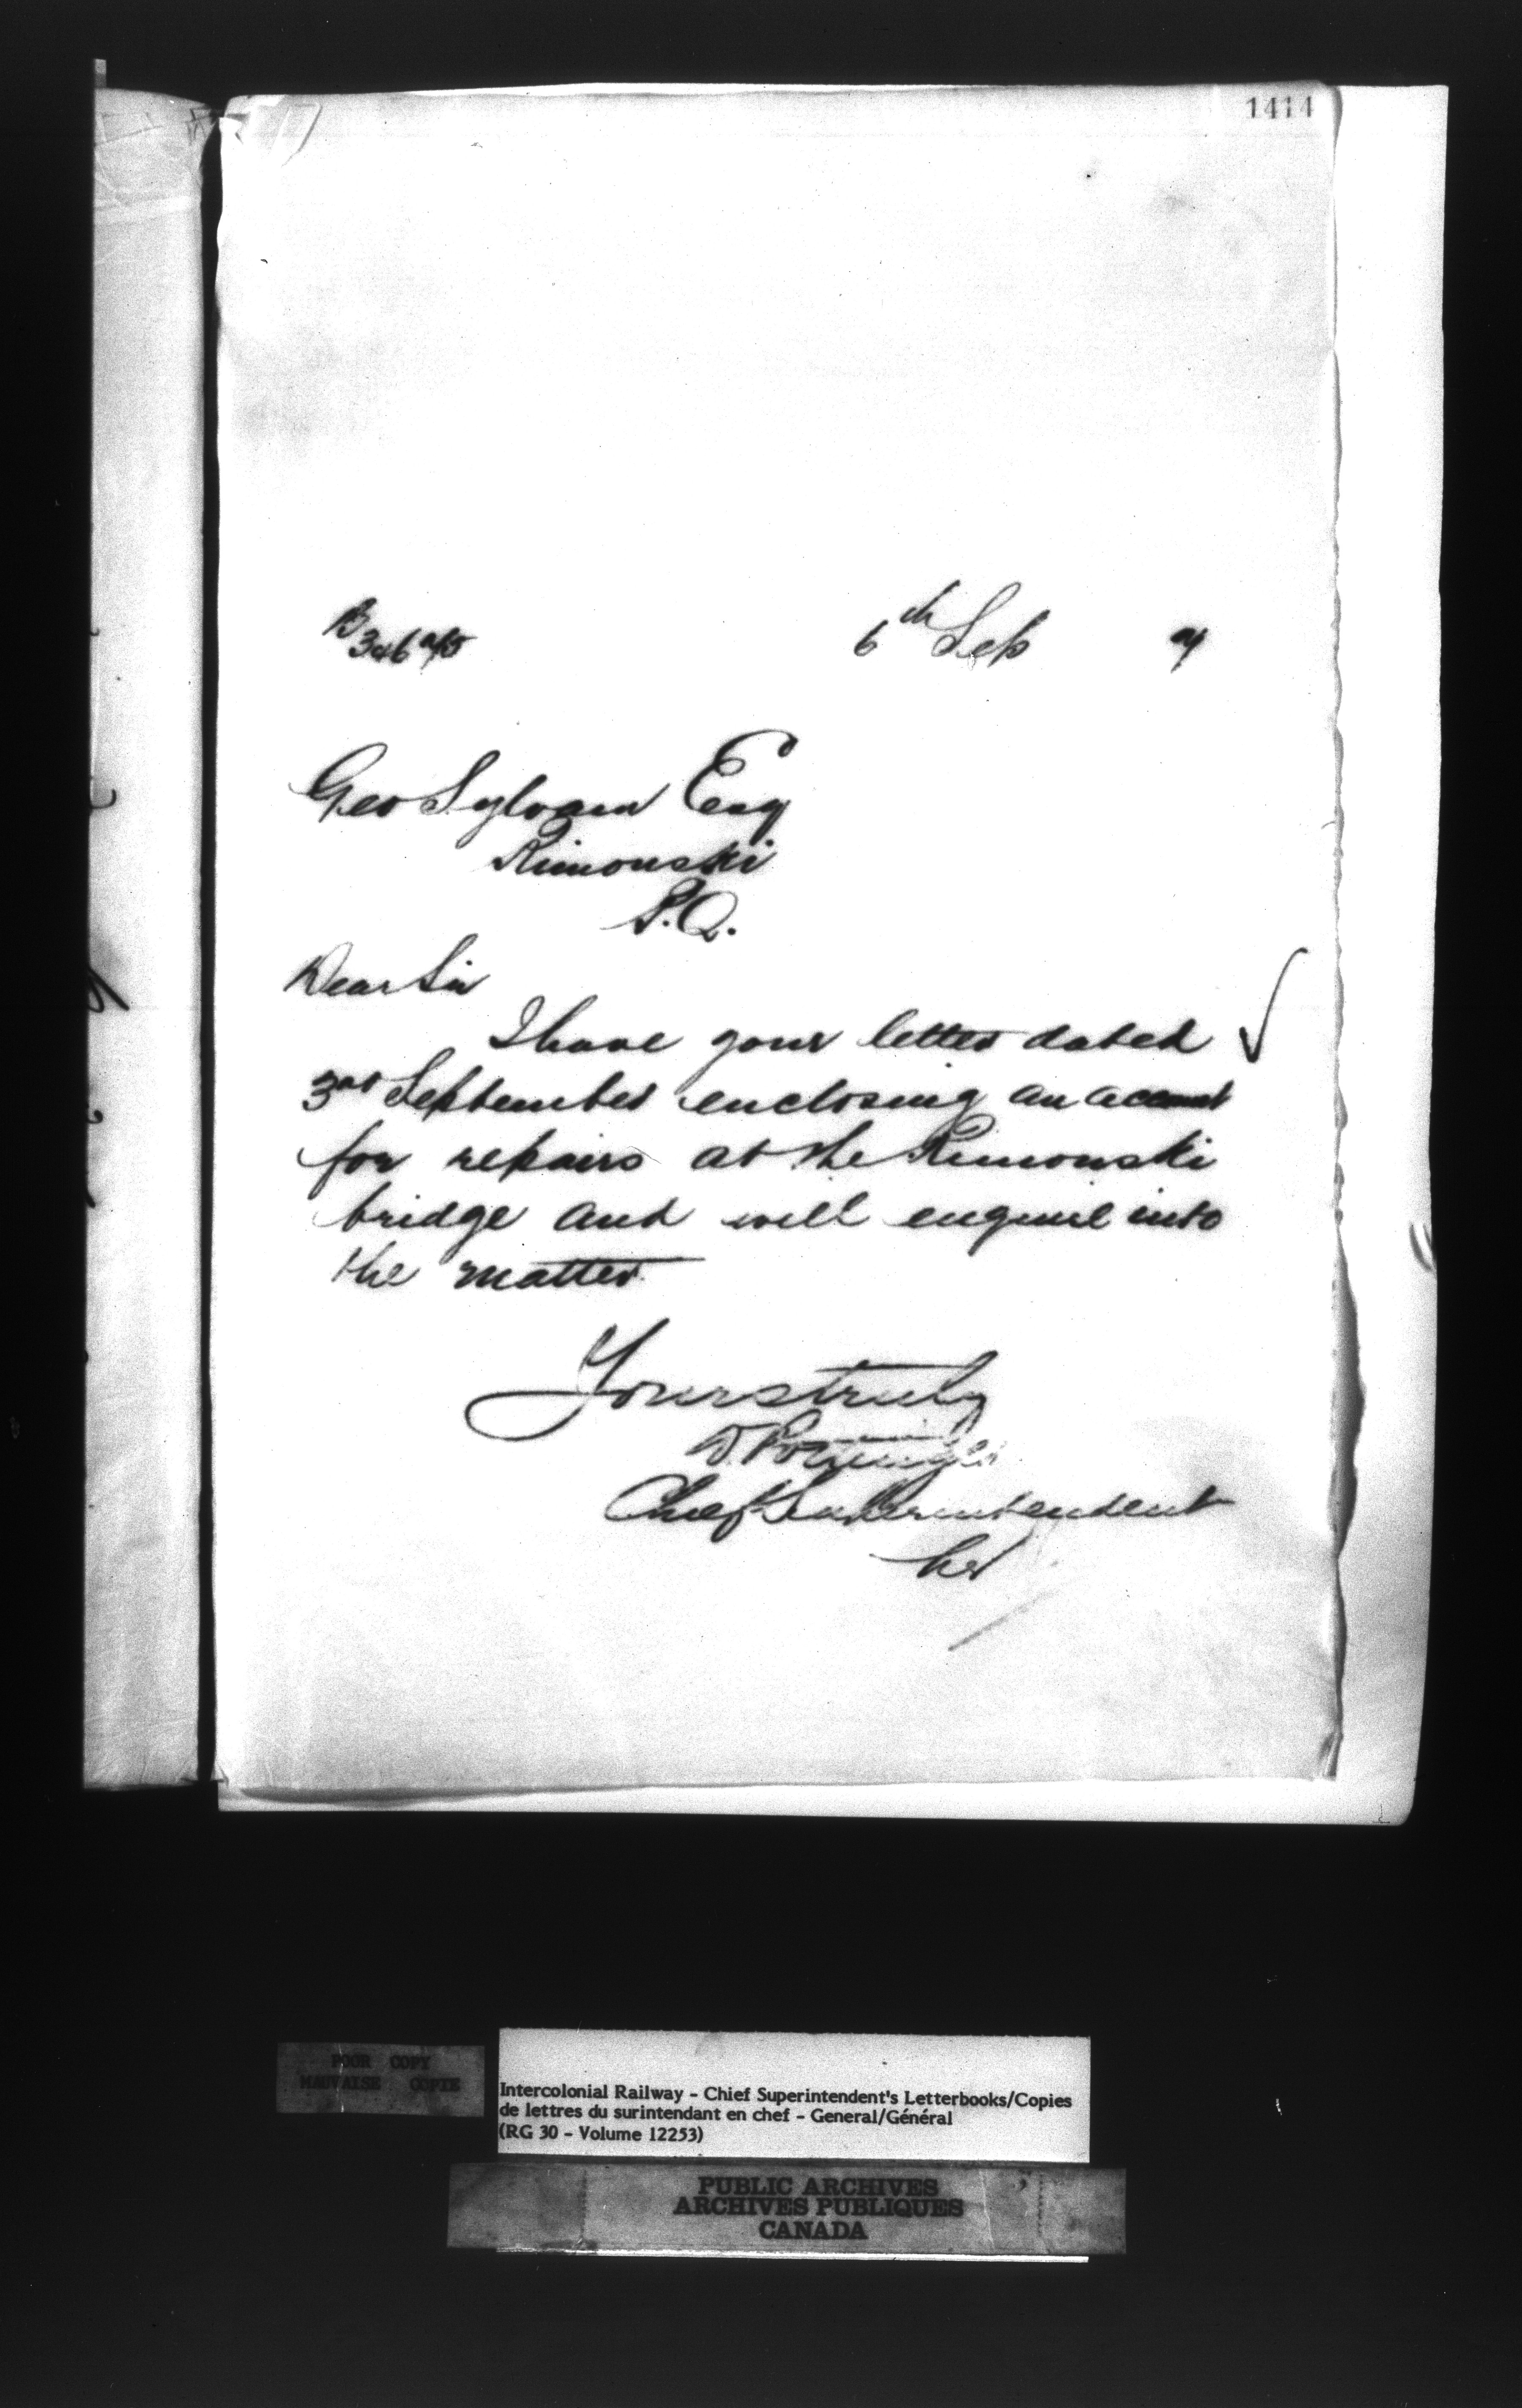 1414
6th Sep
Geo Sylvain Esq
Rimouski
P.Q.
Dear Sir
I have your letter dated
3rd September enclosing an account
for repairs at the Rimouski
bridge and will enquire into
the matter.
Yours truly
D. Pottinger
Chief Superintendent
POOR COPY
MAUVAISE COPIE
Intercolonial Railway - Chief Superintendent's Letterbooks/Copies
de lettres du surintendant en chef - General/Général
(RG 30 - Volume 12253)
PUBLIC ARCHIVES
ARCHIVES PUBLIQUES
CANADA